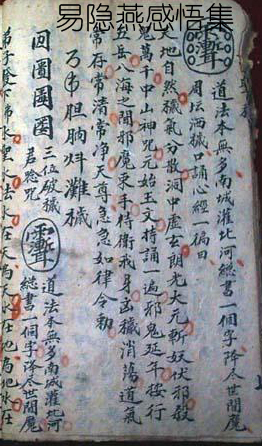 易隐燕感悟集
道法本無多南城灌北河總書一個字降令世間魔
用坛洒穢口誦心經一徧曰
天地自然穢氣分散洞中虛玄朗光大元斬妖伏邪殺
鬼萬千中山神咒元始玉文持誦一遍邪鬼延年按行
五岳八海之聞邪魔束手侍衛我身凶穢消蕩道氣
常存常清常净天尊急急如律令勅
三位破穢
君唸咒
道法本無多南城灌北河
總書一個字降令世間魔
弟子 水聖水法水在天為天水在地為地水在